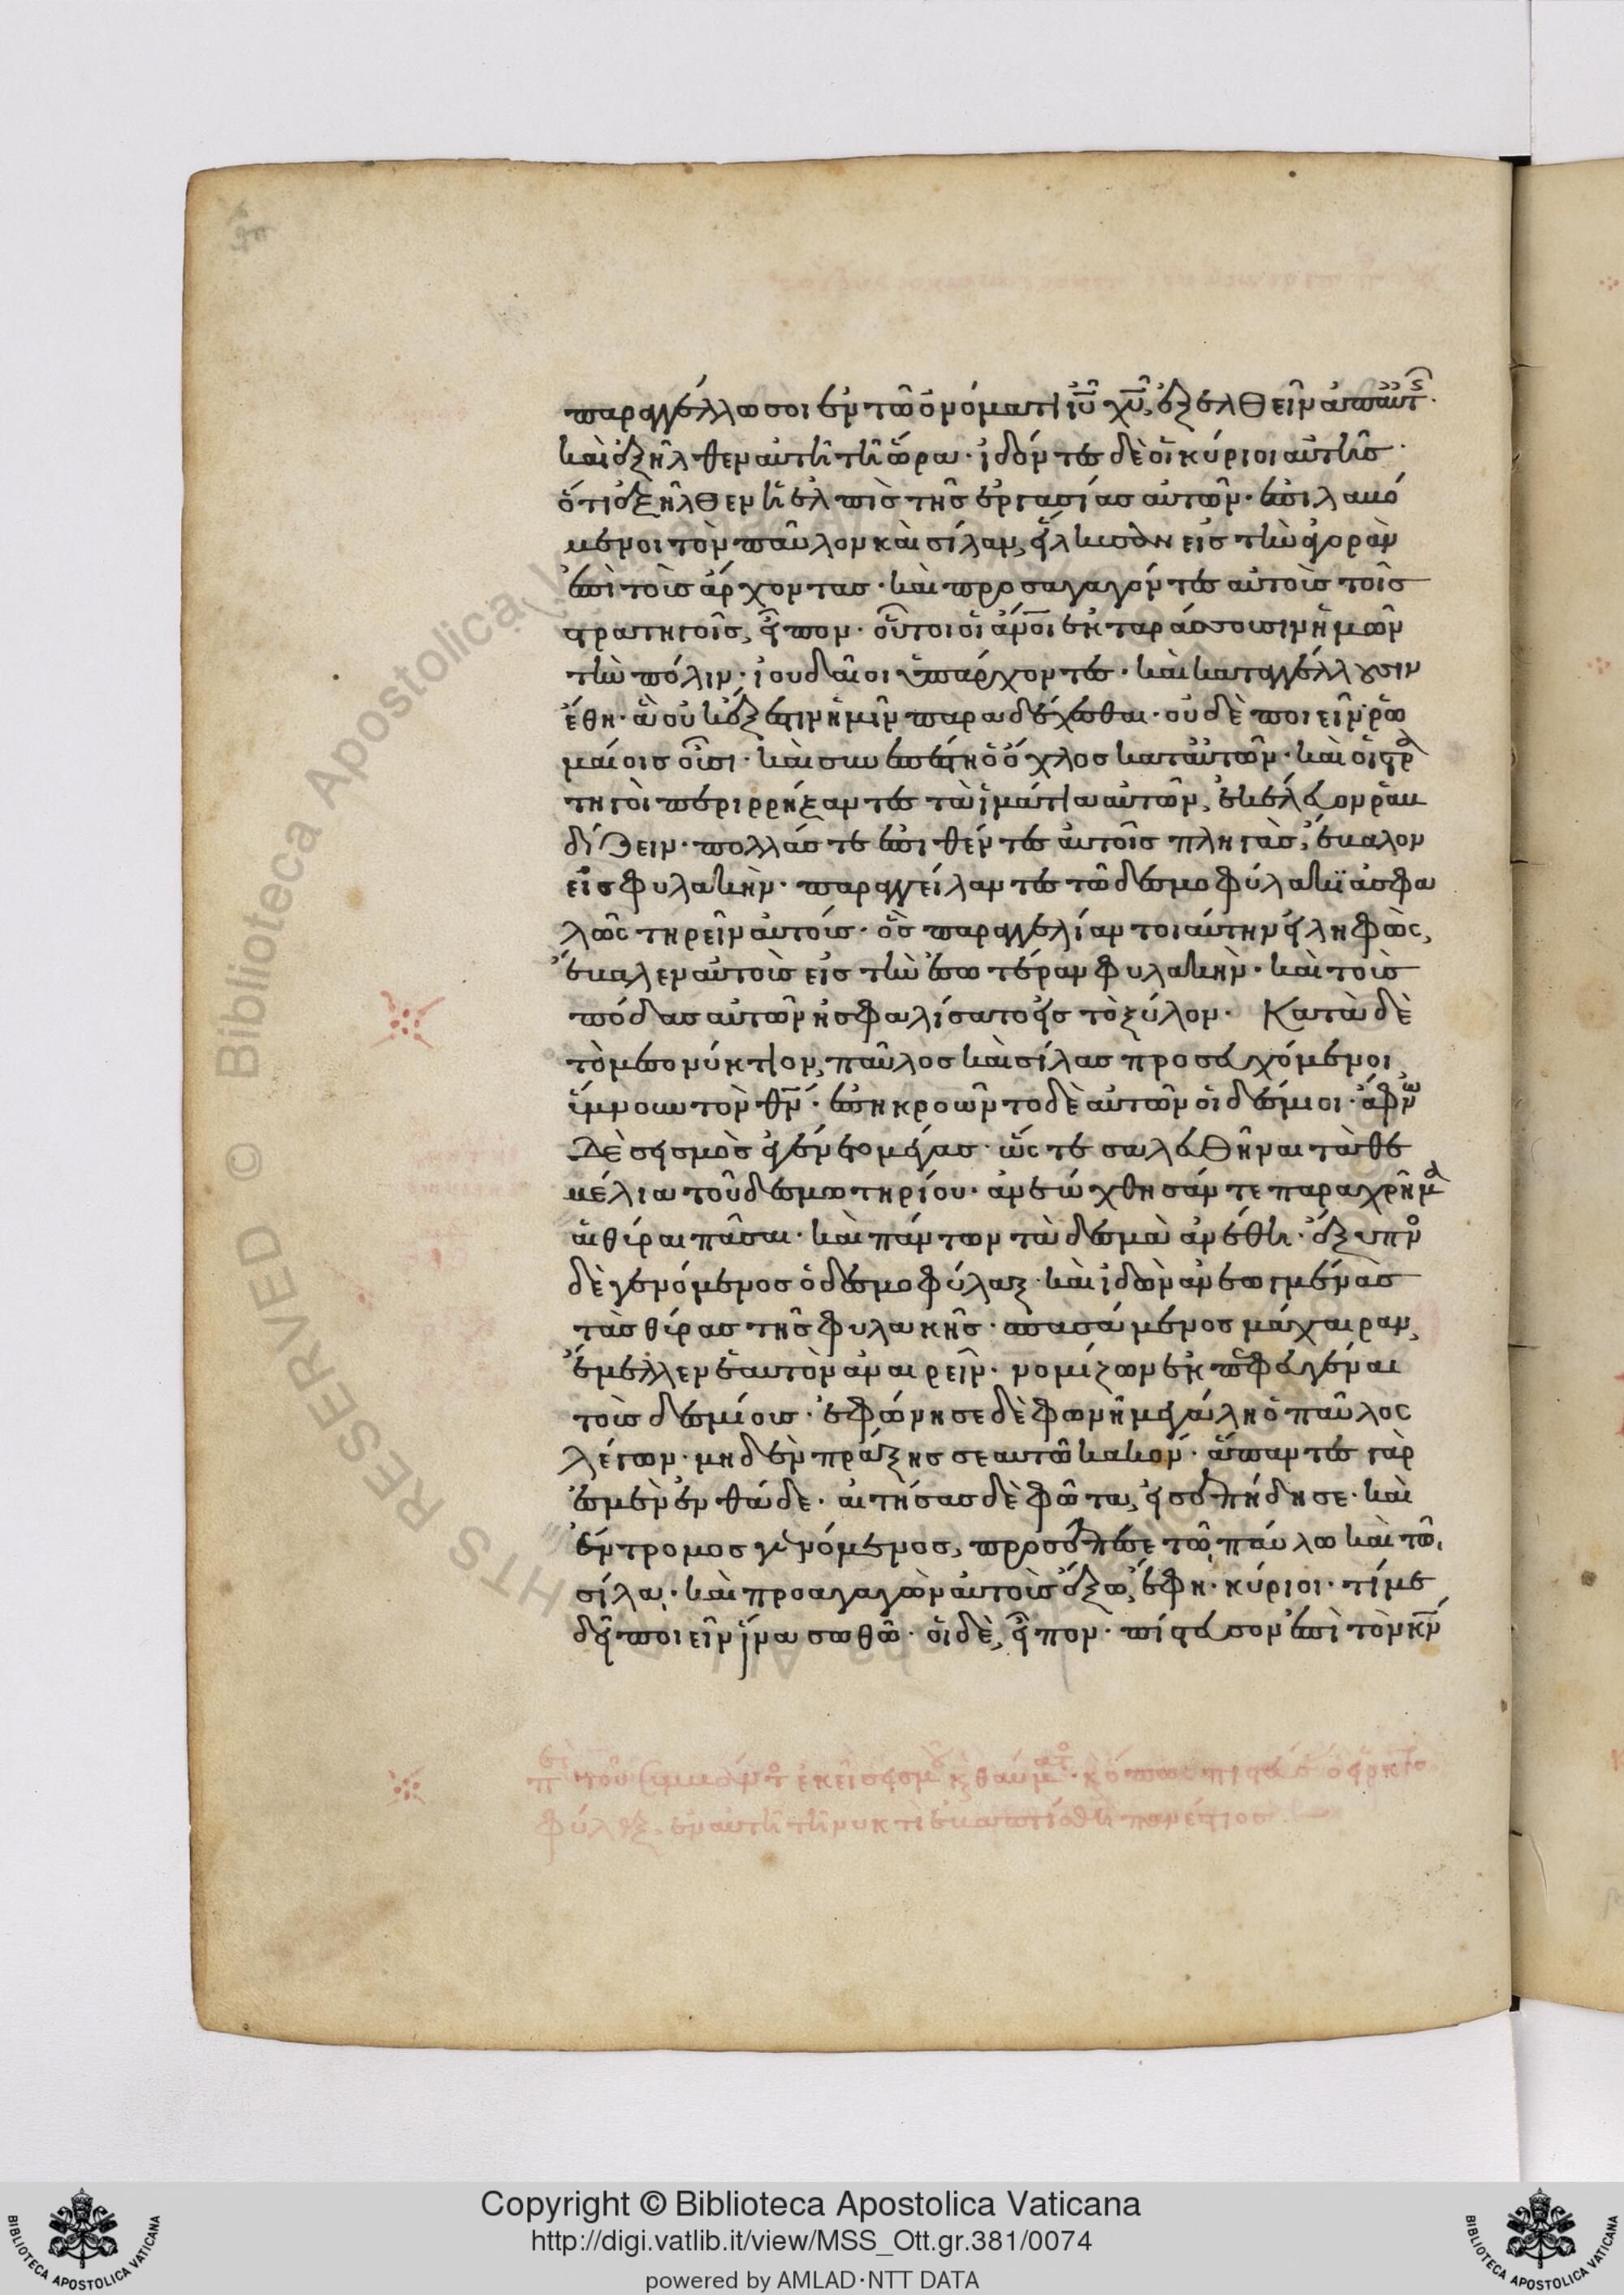 παραγγέλλω σοι ἐν τῶ ὀνόματι ἰῦ χῦ, ἐξελθεῖν ἀπ αὐτῆς·
καὶ ἐξῆλθεν αὐτῆ τῆ ὥρα· ἰδόντες δὲ οἱ κύριοι αὐτῆς·
ὅτι ἐξῆλθεν ἡ ἐλπὶς τῆς ἐργασίας αὐτῶν· ἐπιλαβό
μενοι τὸν παῦλον καὶ σίλαν, εἵλκυσαν εἰς τὴν ἀγορὰν
ἐπὶ τοὺς ἄρχοντας· καὶ προσαγαγόντες αὐτοὺς τοῖς
στρατηγοῖς, εἶπον· οὗτοι οἱ ἄνοι ἐκταράσσουσιν ἡμῶν
τὴν πόλιν· ἰουδαῖοι ὑπάρχοντες· καὶ καταγγέλλουσιν
ἔθη· ἃ οὐκ ἔξεστιν ἡμῖν παραδέχεσθαι· οὐδὲ ποιεῖν ῥω
μαίοις οὖσι· καὶ συνεπέστη ὁ ὄχλος κατ αὐτῶν· καὶ οἱ στρα
τηγοὶ περιρρήξαντες τὰ ἱμάτια αὐτῶν, ἐκέλευον ῥαβ
δίζειν· πολλάς τε ἐπιθέντες αὐτοῖς πληγὰς, ἔβαλον
εἰς φυλακὴν· παραγγείλαντες τῶ δεσμοφύλακι ἀσφα
λῶς τηρεῖν αὐτούς· ὃς παραγγελίαν τοιαύτην εἰληφὼς,
ἔβαλεν αὐτοὺς εἰς τὴν ἐσωτέραν φυλακὴν· καὶ τοὺς
πόδας αὐτῶν ἠσφαλίσατο εἰς τὸ ξύλον· Κατὰ δὲ
τὸ μεσονύκτιον, παῦλος καὶ σίλας προσευχόμενοι,
ὕμνουν τὸν θν· ἐπηκροῶντο δὲ αὐτῶν οἱ δέσμιοι· ἄφνω
δὲ σεισμὸς ἐγένετο μέγας· ὥστε σαλευθῆναι τὰ θε
μέλια τοῦ δεσμωτηρίου· ἀνεώχθησάν τε παραχρῆμα
αἱ θύραι πᾶσαι· καὶ πάντων τὰ δεσμὰ ἀνέθη· ἔξυπνος
δὲ γενόμενος ὁ δεσμοφύλαξ· καὶ ἰδὼν ἀνεωγμένας
τὰς θύρας τῆς φυλακῆς· σπασάμενος μάχαιραν,
ἔμελλεν ἑαυτὸν ἀναιρεῖν· νομίζων ἐκπεφευγέναι
τοὺς δεσμίους· ἐφώνησε δὲ φωνῆ μεγάλη ὁ παῦλος
λέγων· μηδὲν πράξης σεαυτῶ κακόν· ἅπαντες γάρ
ἐσμὲν ἐνθάδε· αἰτήσας δὲ φῶτα, εἰσεπήδησε· καὶ
ἔντρομος γενόμενος, προσέπεσε τῶ παύλω καὶ τῶ
σίλα· καὶ προαγαγὼν αὐτοὺς ἔξω, ἔφη· κύριοι· τί με
δεῖ ποιεῖν ἵνα σωθῶ· οἱ δὲ, εἶπον· πίστευσον ἐπὶ τὸν κν
περὶ τοῦ συμβάντος ἐκεῖ σεισμοῦ καὶ θαύματος· καὶ ὅπως πιστεύσας ὁ εἱρκτο
φύλαξ. ἐν αὐτῆ τῆ νυκτὶ ἐβαπτίσθη πανέστιος.
Copyright © Biblioteca Apostolica Vaticana
http://digi.vatlib.it/view/MSS_Ott.gr.381/0074
powered by AMLAD·NTT DATA
BIBLIOTECA APOSTOLICA VATICANA
BIBLIOTECA APOSTOLICA VATICANA